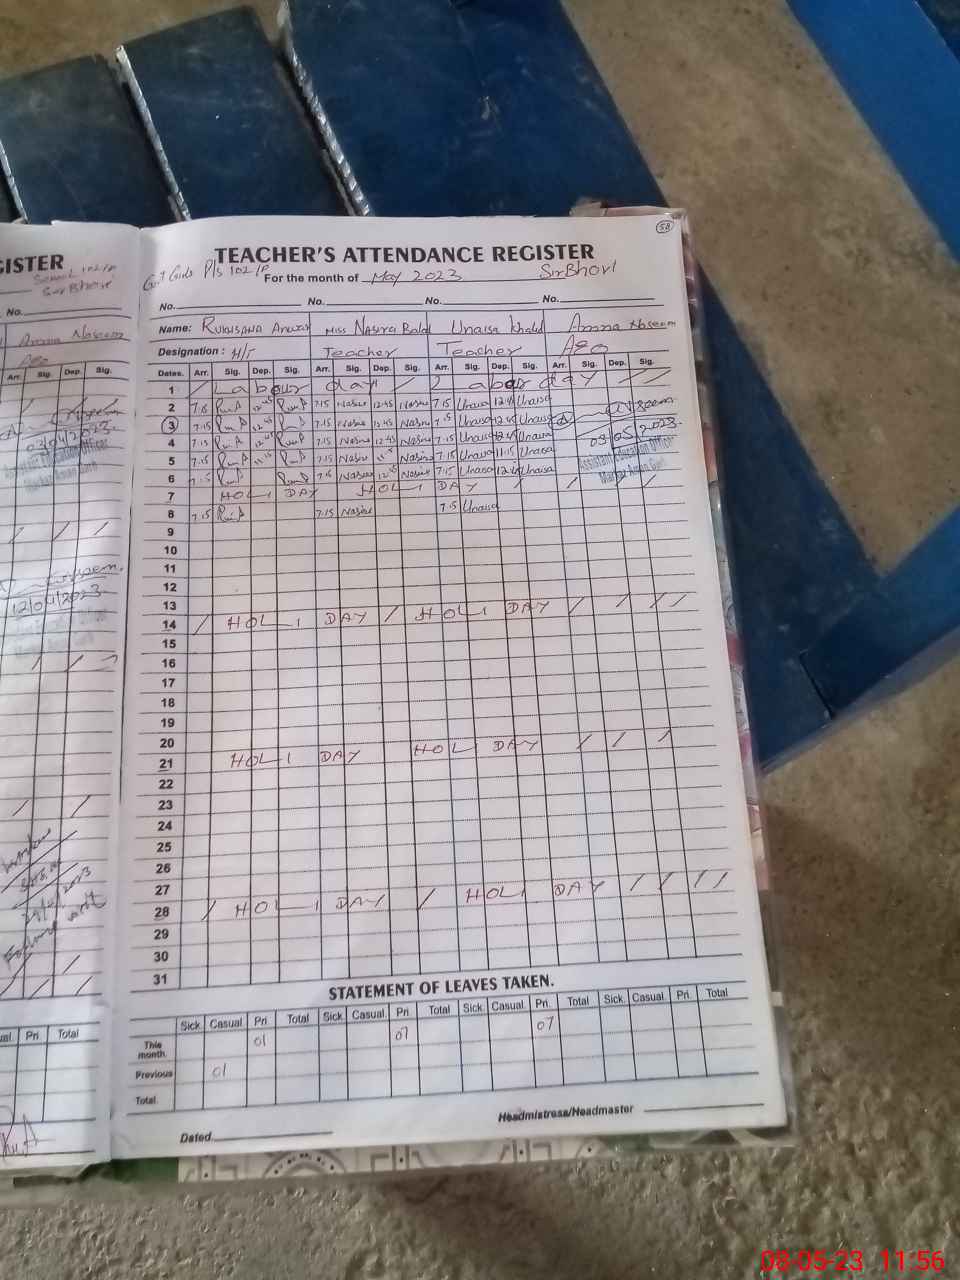 58
TEACHER'S ATTENDANCE REGISTER
Govt Girls P/S 102/P For the month of May 2023 Sir Bhori
No. No. No. No.
Name: Rukhsana Anwar Miss Nasira Unaisa Khalid Amna Naseem
Designation: H/T Teacher Teacher AEO
Dates. Arr. Sig. Dep. Sig. Arr. Sig. Dep. Sig. Arr. Sig. Dep. Sig. Arr. Sig. Dep. Sig.
1 Labour day Labour day
2 7.15 12.45 7.15 Nasira 12.45 Nasira 7.15 Unaisa 12.45 Unaisa
3 7.15 12.45 7.15 Nasira 12.45 Nasira 7.15 Unaisa 12.45 Unaisa
4 7.15 12.45 7.15 Nasira 12.45 Nasira 7.15 Unaisa 12.45 Unaisa 03/05/2023.
5 7.15 11.15 7.15 Nasira Nasira 7.15 Unaisa 11.15 Unaisa Assistant Education Officer
6 7.15 Nasira 12.45 Nasira 7.15 Unaisa 12.45 Unaisa
7 HOLI DAY HOLI DAY
8 7.15 7.15 Nasira 7.15 Unaisa
9
10
11
12
13
14 HOLI DAY HOLI DAY
15
16
17
18
19
20
21 HOLI DAY HOLI DAY
22
23
24
25
26
27
28 HOLI DAY HOLI DAY
29
30
31
STATEMENT OF LEAVES TAKEN.
Sick. Casual. Pri. Total Sick. Casual. Pri. Total Sick. Casual. Pri. Total Sick. Casual. Pri. Total
This month. 01 07 07
Previous 01
Total.
Headmistress/Headmaster
Dated
GISTER
School 102/P
Sir Bhori
No.
Amna Naseem
AEO
Arr. Sig. Dep. Sig.
03/04/2023.
12/04/2023.
Pri Total
08-05-23 11:56